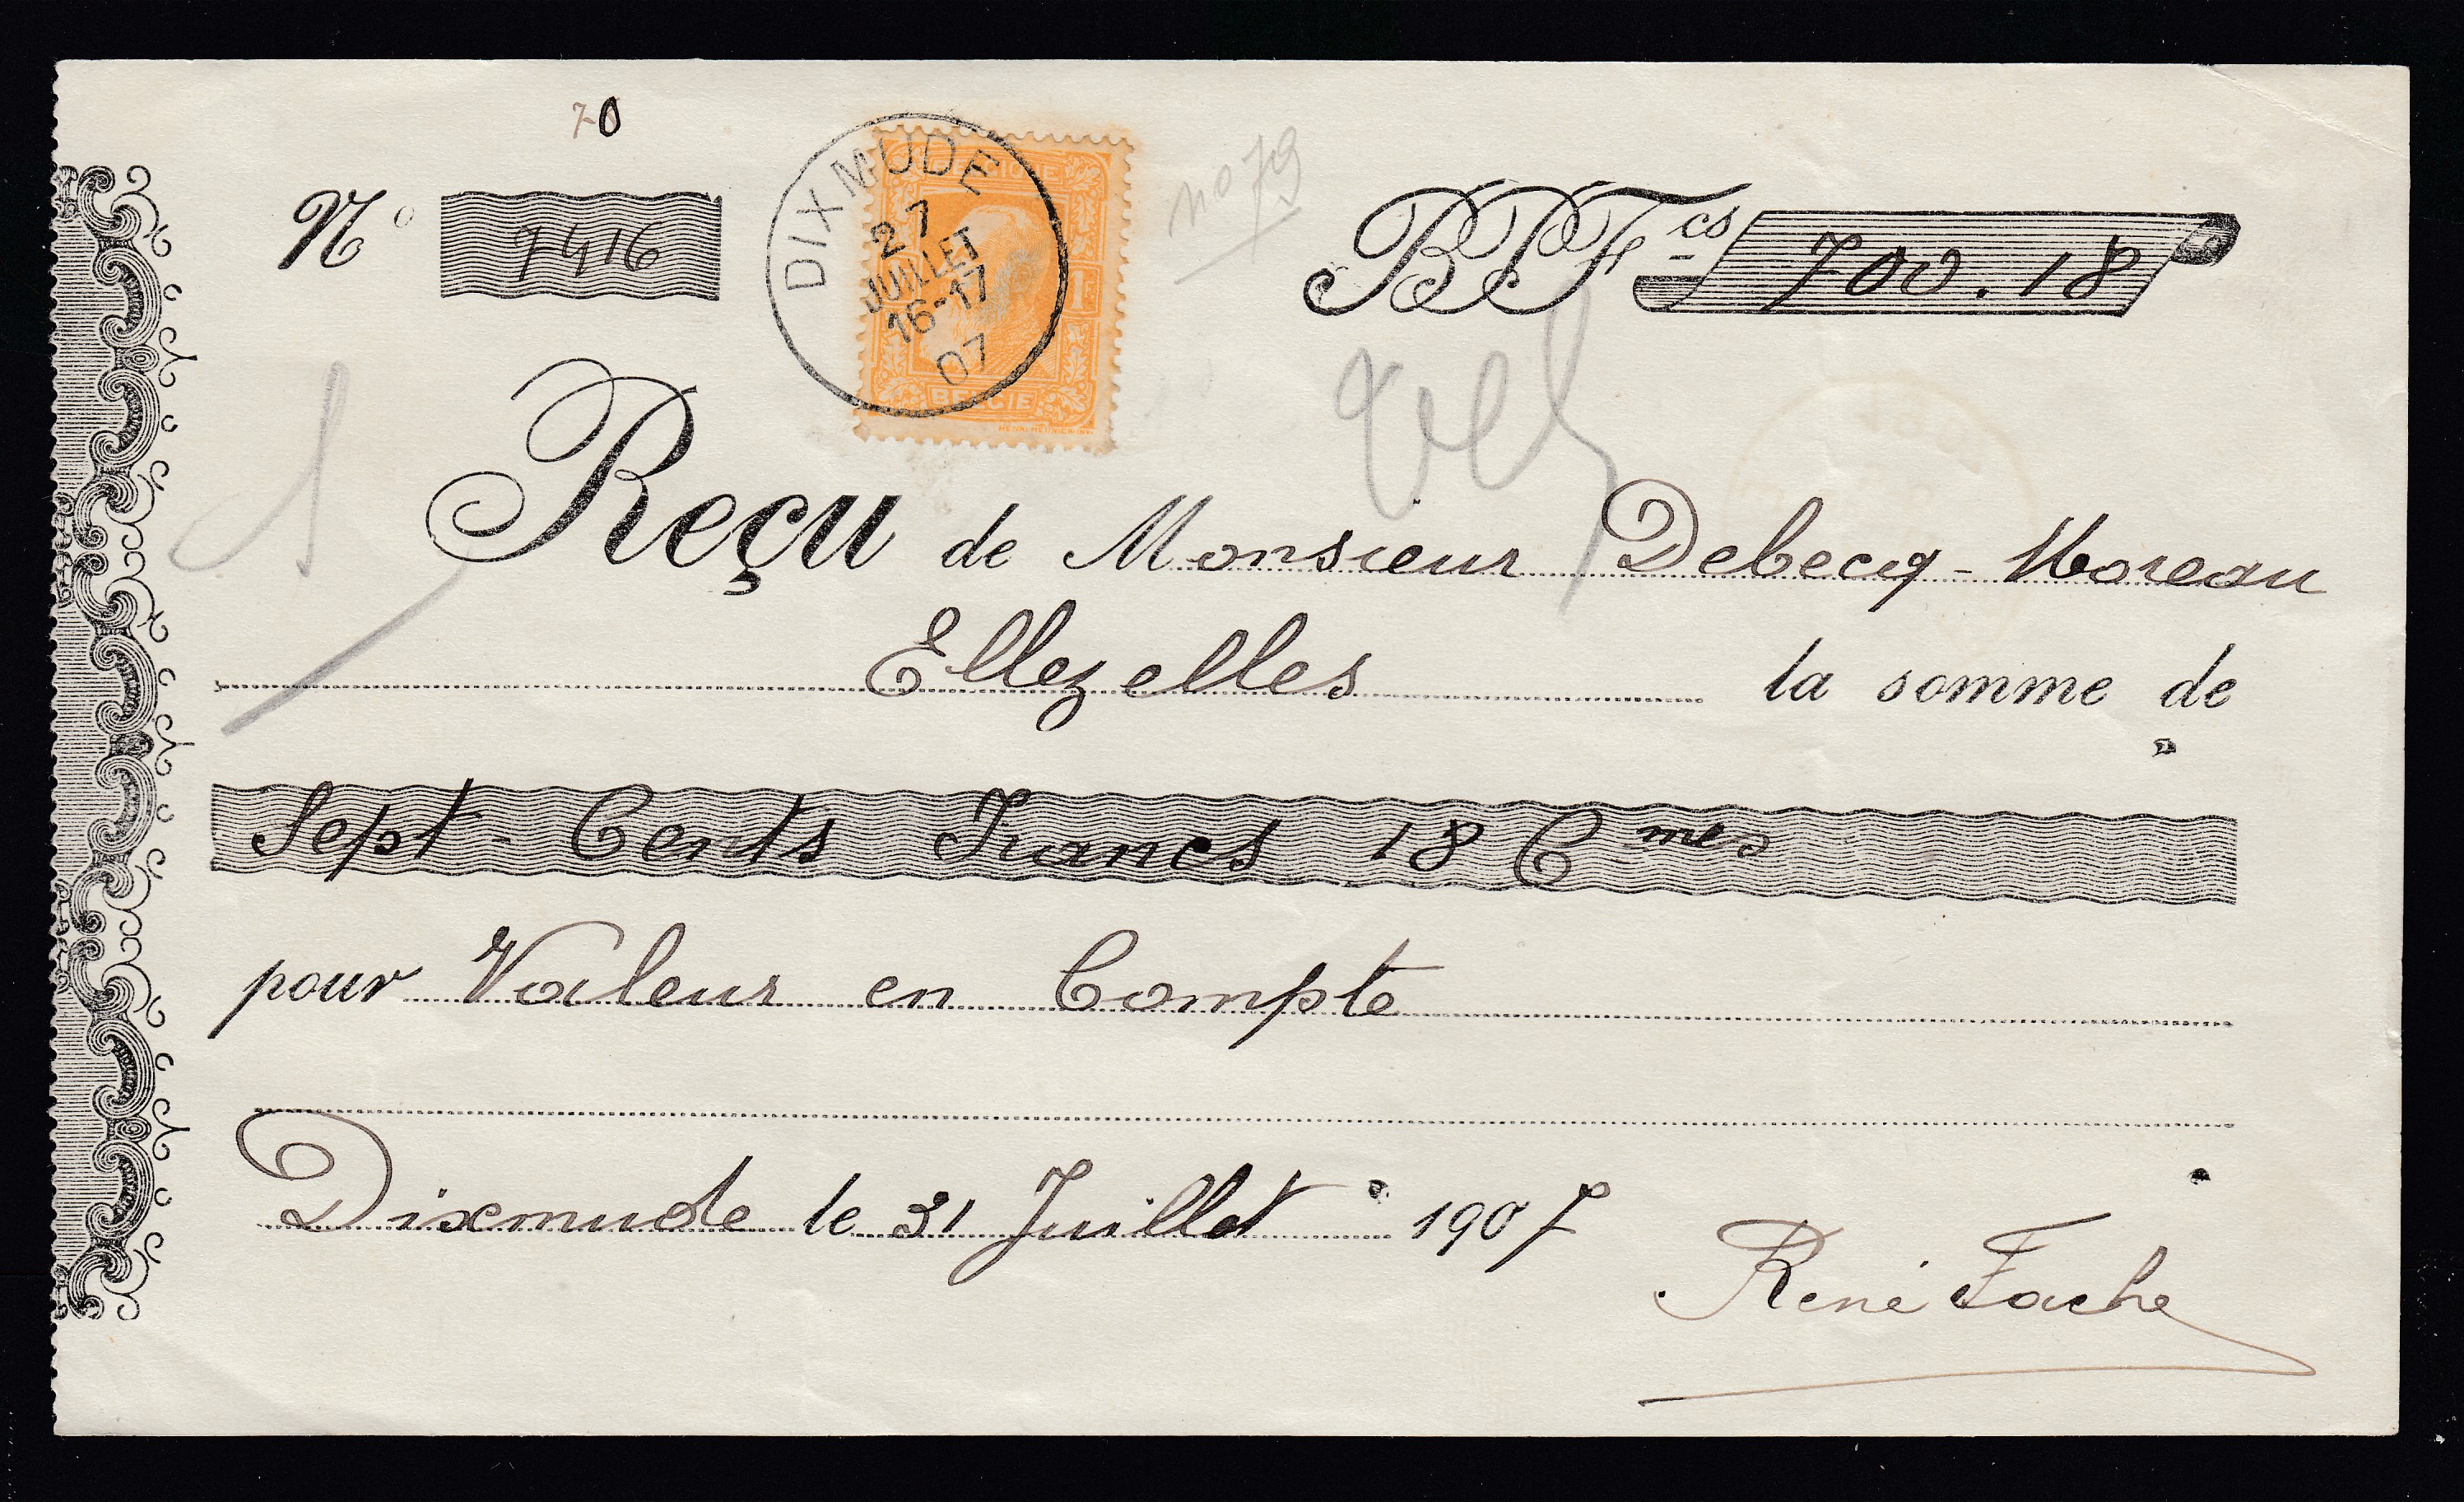 70
N° 7416
DIXMUDE
27
JUILLET
16-17
07
BELGIQUE
BELGIE
no 79
BPFcs 700.18
Reçu de Monsieur Debecq-Moreau
Ellezelles la somme de
Sept-Cents Francs 18 Cmes
pour Valeur en Compte
Dixmude le 31 Juillet 1907
René Fache